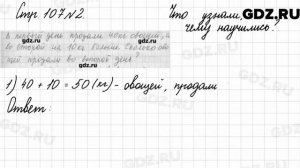 Стр. 107 №2.
Что узнали,
чему научились?
GDZ.RU
В первый день продали 40 кг овощей, а
во второй на 10 кг больше. Сколько ово-
щей продали во второй день?
1) 40 + 10 = 50 (кг) - овощей, продали
Ответ:
GDZ.RU